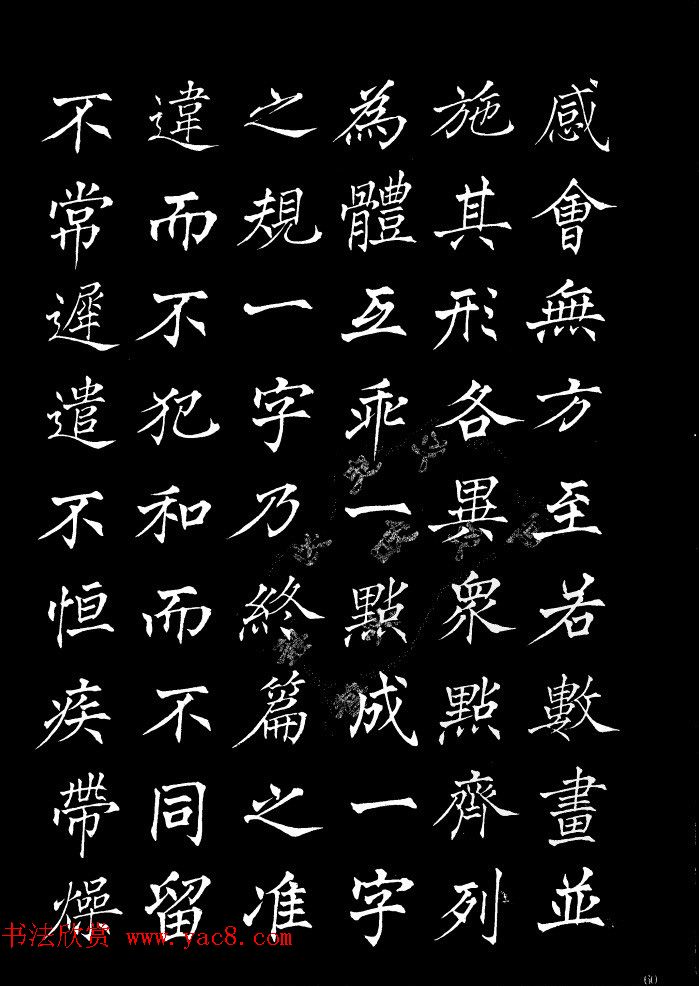 感會無方至若數畫並
施其形各異衆點齊列
為體互乖一點成一字
之規一字乃終篇之准
違而不犯和而不同留
不常遲遣不恒疾帶燥
书法欣赏 www.yac8.com
60